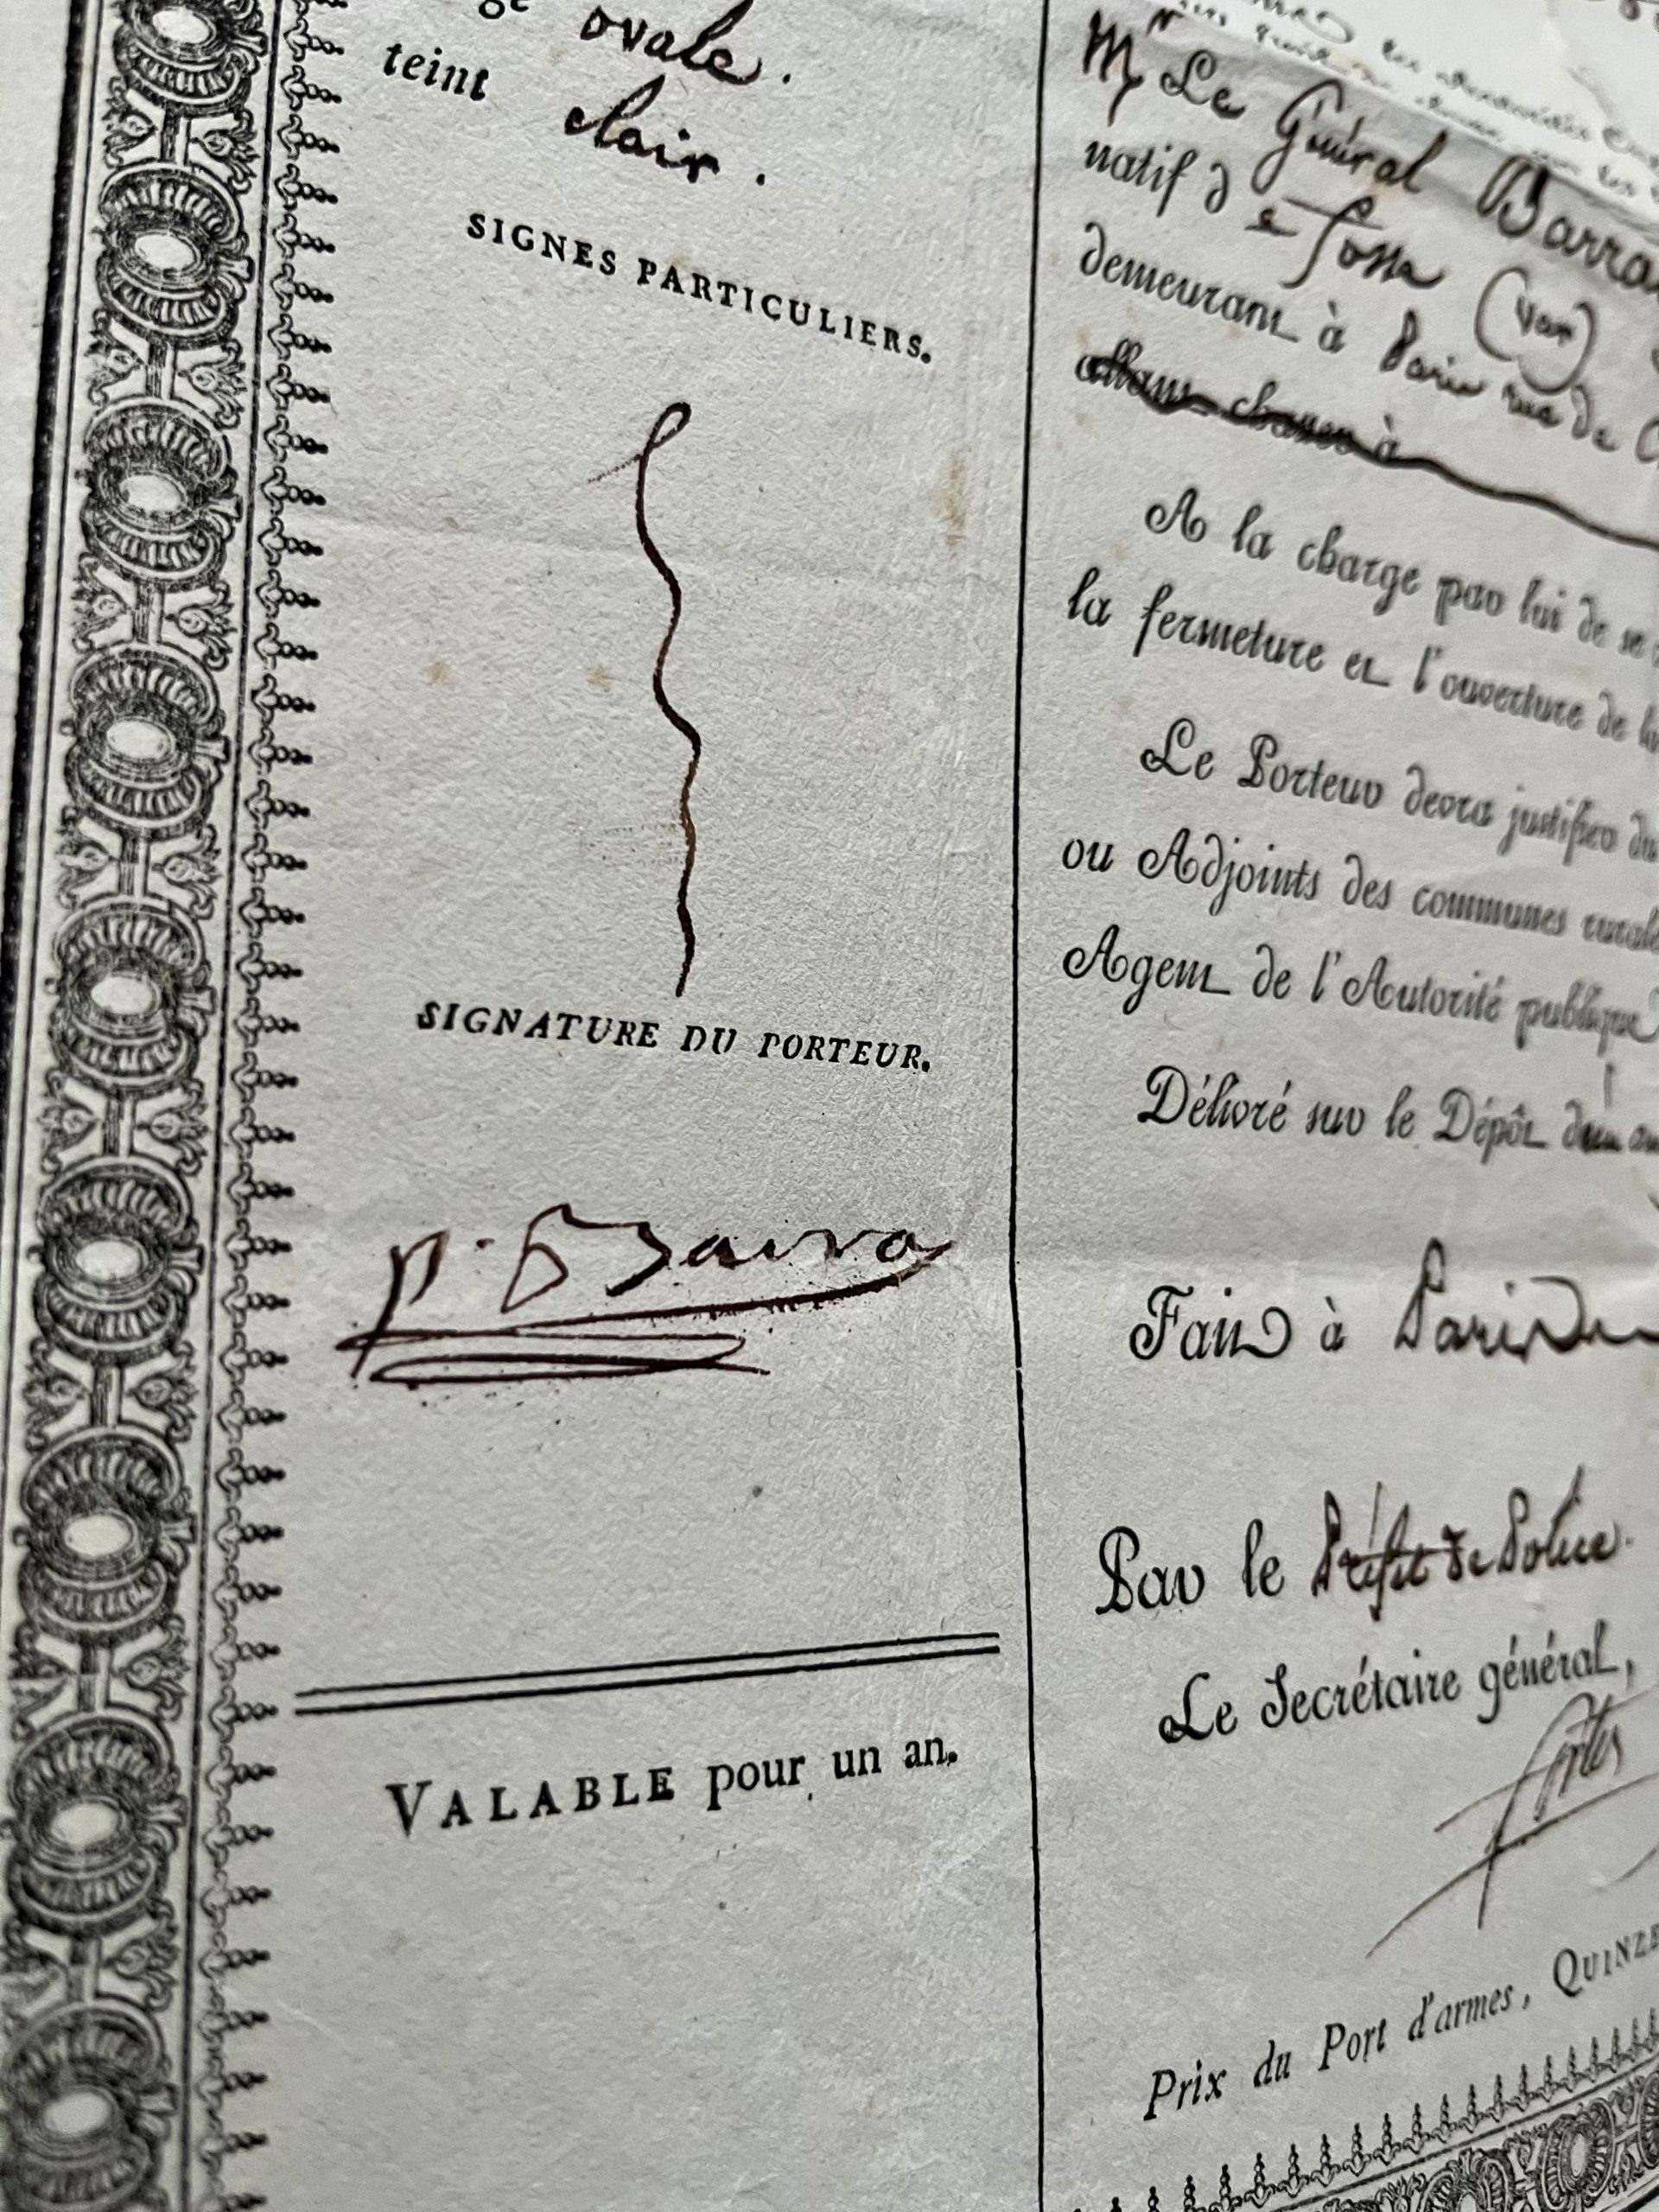 ovale.
teint clair.
SIGNES PARTICULIERS.
SIGNATURE DU PORTEUR.
p. Barra
VALABLE pour un an.
Mr Le Général Barra
natif de Fossa (Var)
demeurant à Paris rue de
allant chasser à
A la charge par lui de se
la fermeture et l'ouverture de la
Le Porteur devra justifier du
ou Adjoints des communes rurale
Agent de l'Autorité publique
Délivré sur le Dépôt d'un
Fait à Paris
Par le Préfet de Police.
Le Secrétaire général,
Prix du Port d'armes, QUINZE